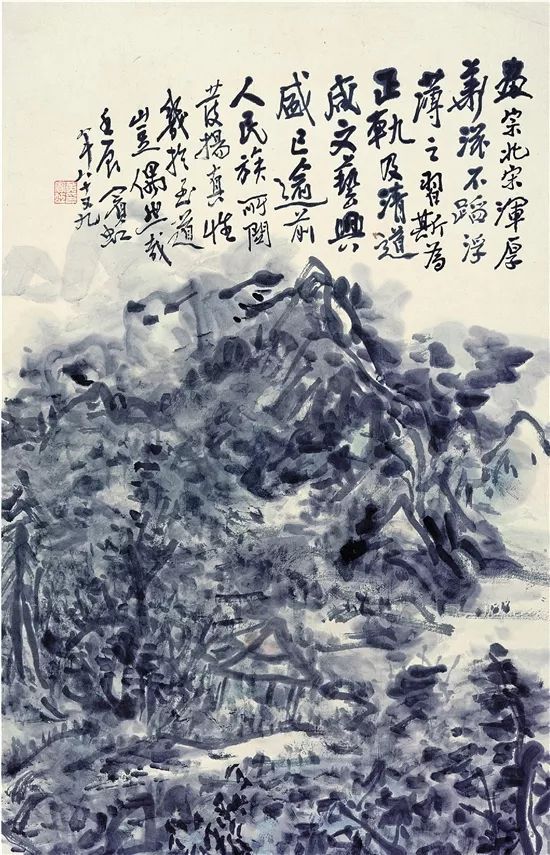 畫宗北宋渾厚
華滋不蹈浮
薄之習斯為
正軌及清道
咸文藝興
盛已逾前
人民族所關
發揚真性
幾於至道
豈偶然哉
壬辰賓虹
年八十又九